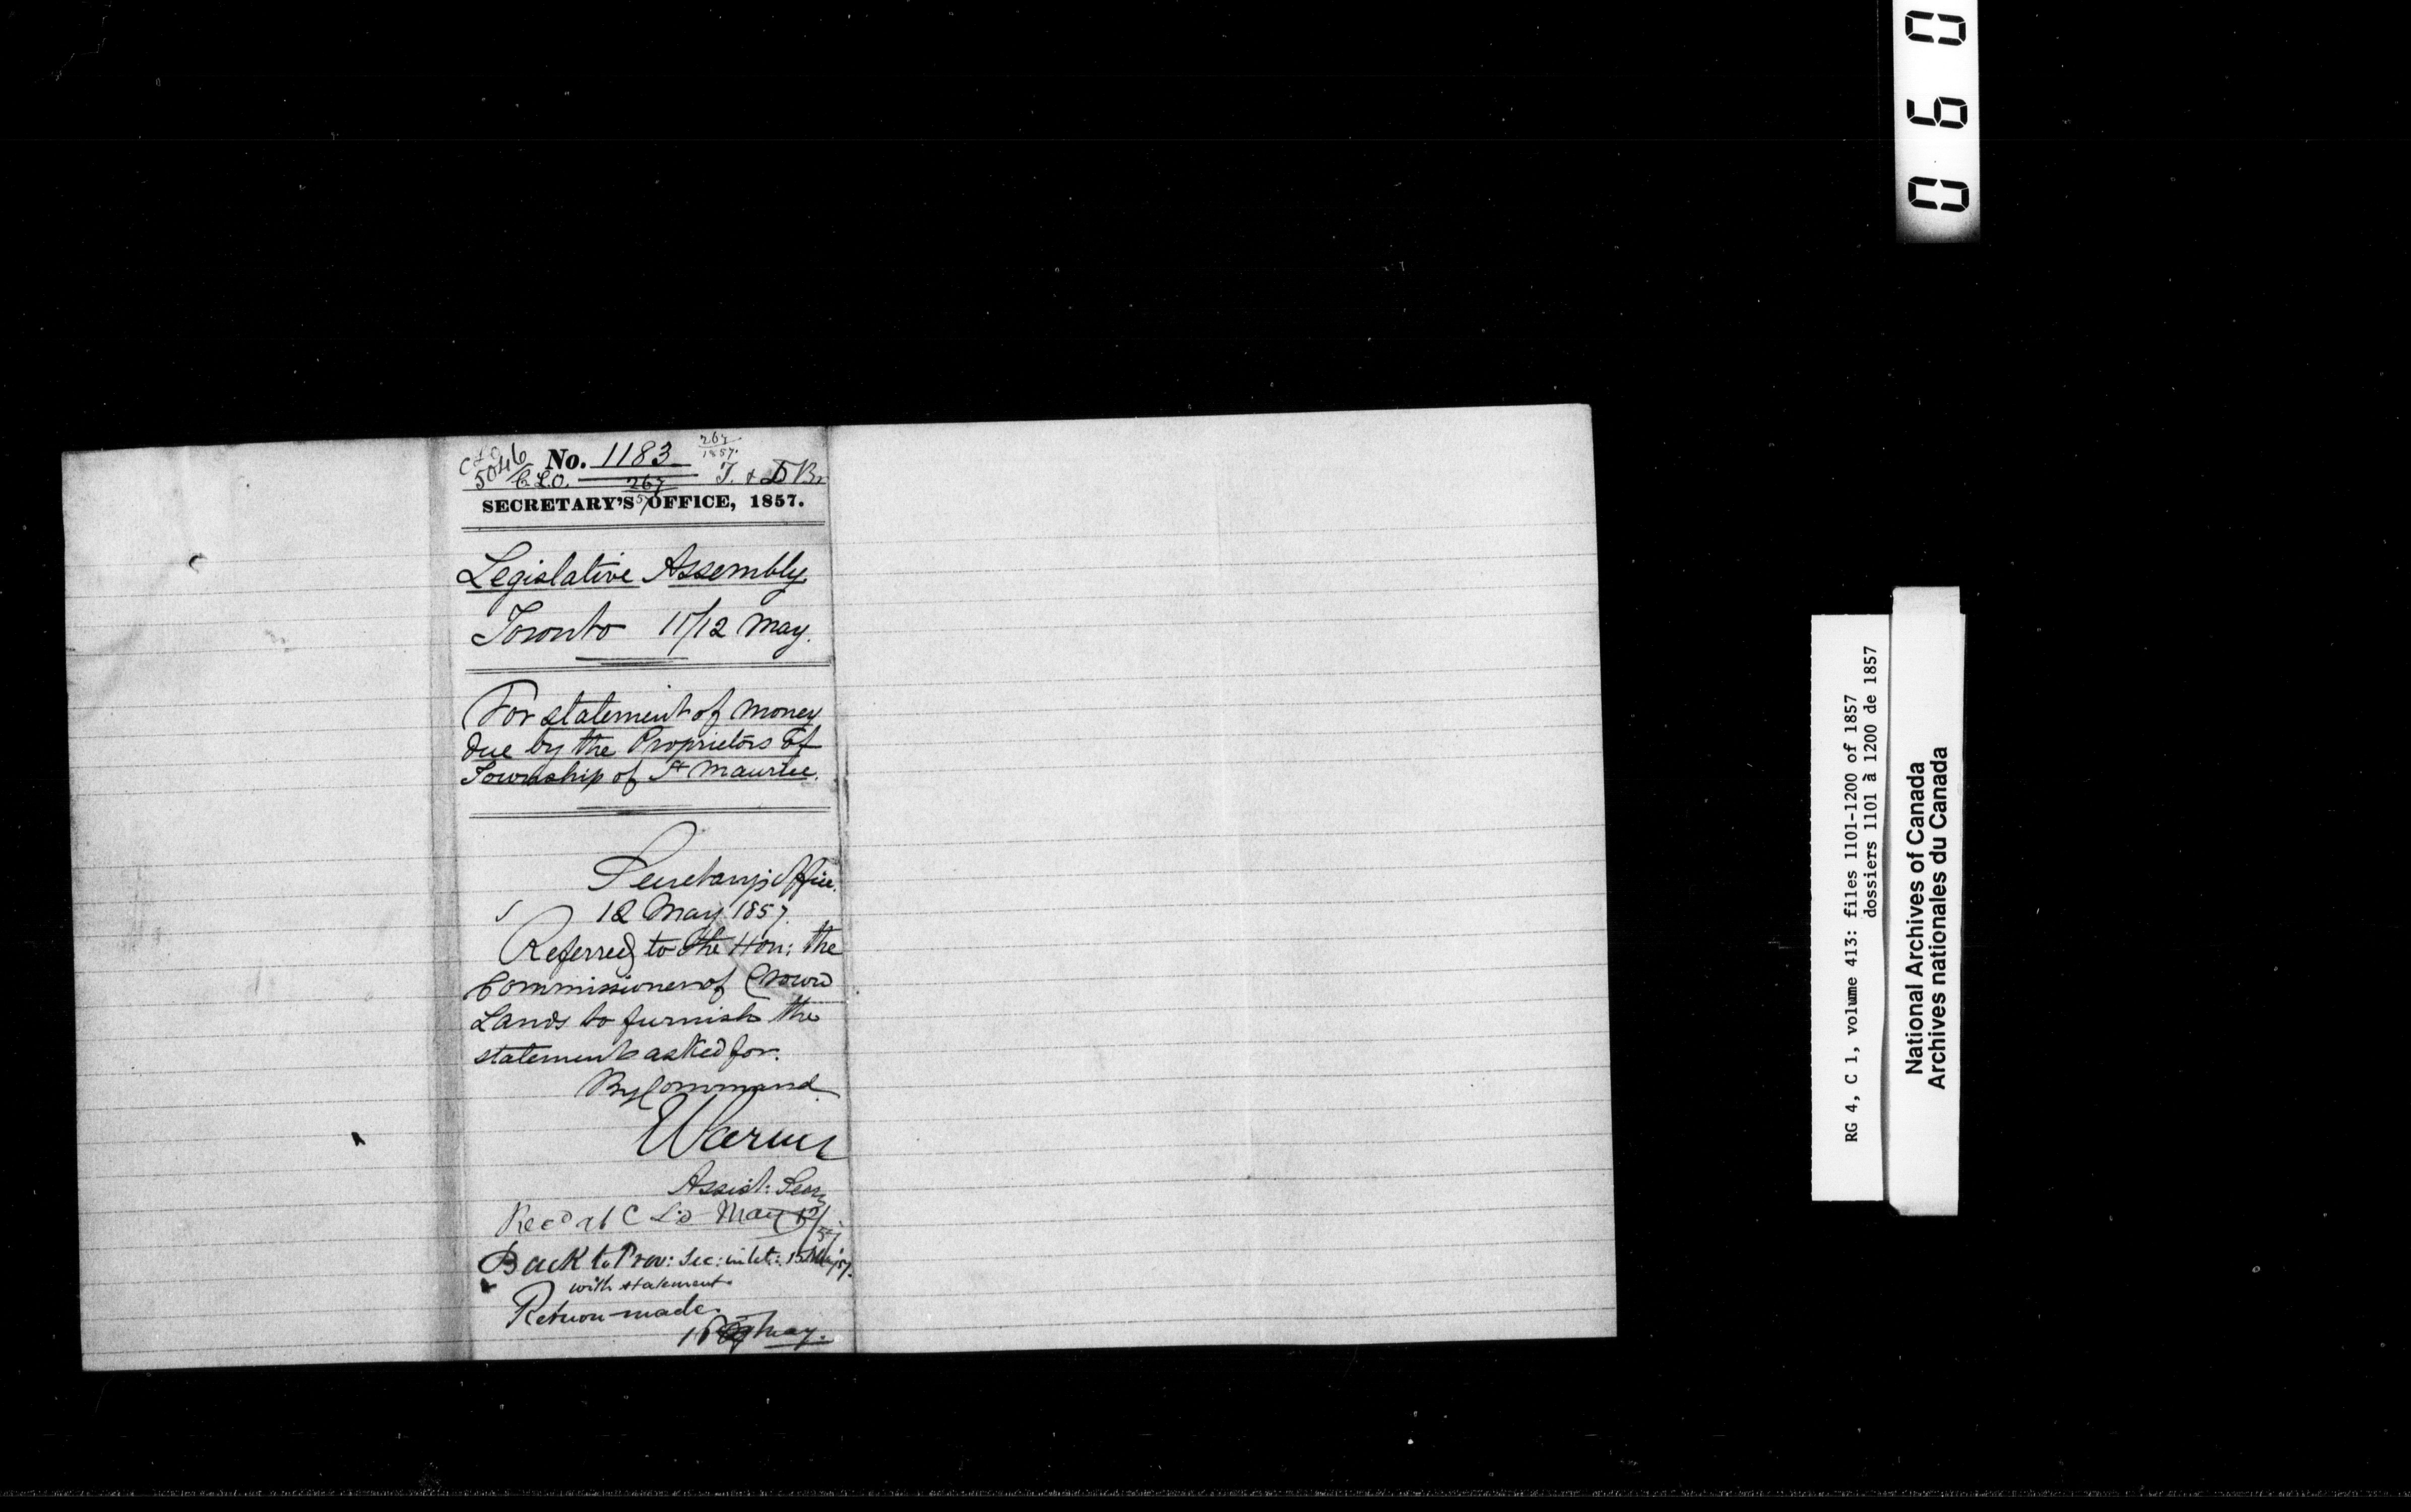 C L O
5046
No. 1183
267
1857.
C. L. O.
267
57
T. & D Br
SECRETARY'S OFFICE, 1857.
Legislative Assembly
Toronto 11/12 May.
For statement of money
due by the Proprietors of
Township of St Maurice.
Secretary's Office.
12 May 1857.
Referred to the Hon: the
Commissioner of Crown
Lands to furnish the
statement asked for.
By Command.
Assist: Secy
Recd at C L D May
Back to Prov: Sec: in let: 15 May 57.
with statement
Return made.
May.
060
RG 4, C 1, volume 413: files 1101-1200 of 1857
dossiers 1101 à 1200 de 1857
National Archives of Canada
Archives nationales du Canada